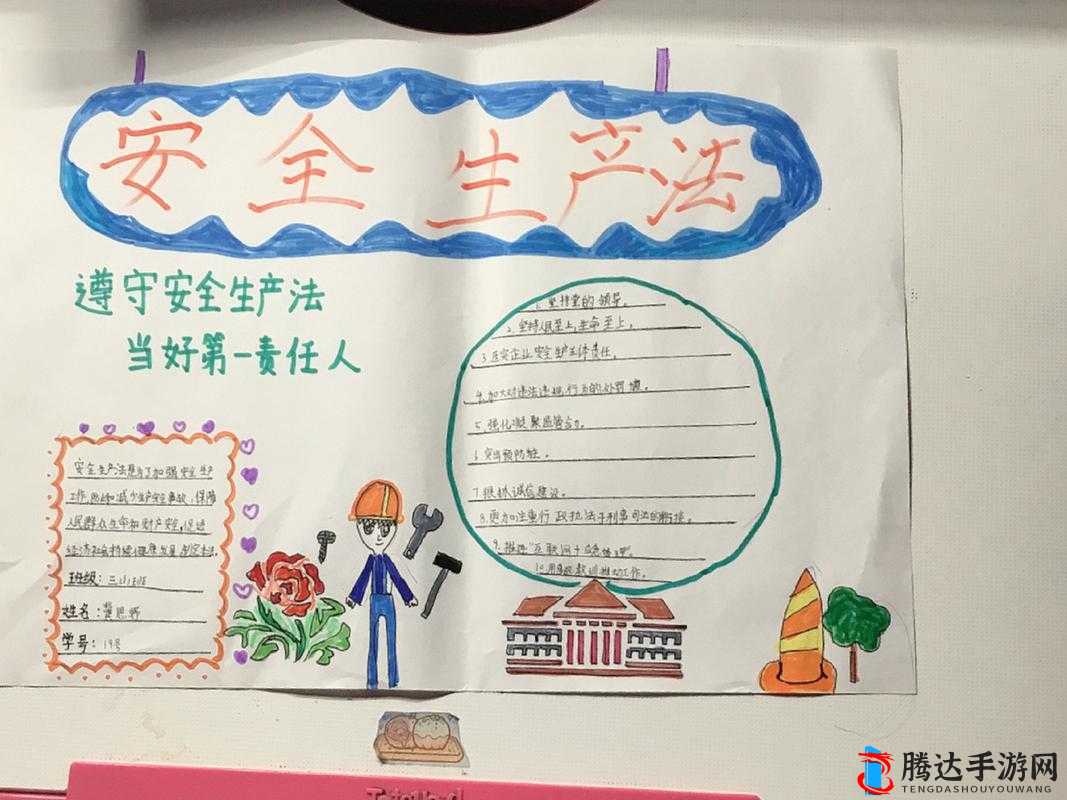 安全生产法
遵守安全生产法
当好第一责任人
1.坚持党的领导。
2.坚持人民至上,生命至上。
3.压实企业安全生产主体责任。
4.加大对违法违规行为的处罚
5.强化
6.突出预防
7.
8.更加注重行政执法于刑事司法的衔接。
9.推进“互联网+
10.用事故教训推动工作。
安全生产法是为了加强安全生产
工作,防止和减少生产安全事故,保障
人民群众生命和财产安全,促进
经济社会持续健康发展
班级:三
姓名:
学号:19号
腾达手游网
TENGDASHOUYOUWANG